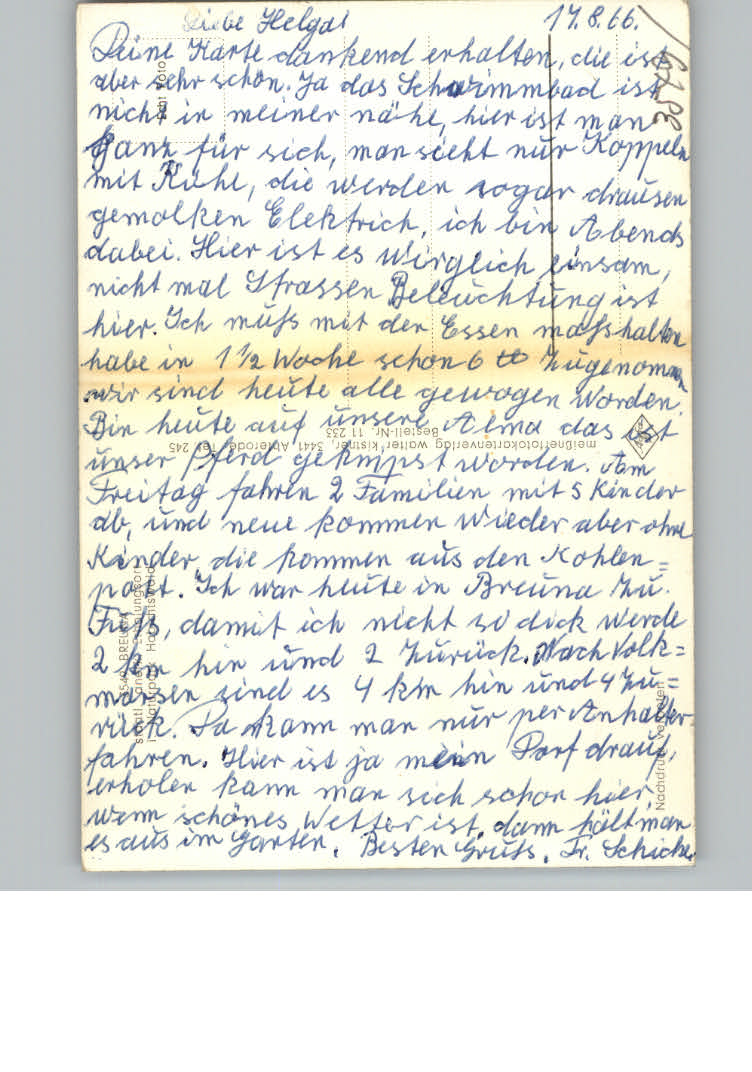 Liebe Helga! 17.8.66.
Deine Karte dankend erhalten, die ist
aber sehr schön. Ja das Schwimmbad ist
nicht in meiner nähe, hier ist man
ganz für sich, man sieht nur Koppeln
mit Kühe, die werden sogar drausen
gemolken Elektrich, ich bin Abends
dabei. Hier ist es Wirglich einsam,
nicht mal Strassen Beleuchtung ist
hier. Ich muß mit den Essen maßhalten
habe in 1 1/2 Woche schon 6 ℔ zugenommen
wir sind heute alle gewogen worden.
Bin heute auf unsere Alma das ist
unser Pferd geknipst worden. Am
Freitag fahren 2 Familien mit 5 Kinder
ab, und neue kommen wieder aber ohne
Kinder, die kommen aus den Kohlen=
pott. Ich war heute in Breuna zu
Fuß, damit ich nicht so dick werde
2 km hin und 2 zurück. Nach Volk=
marsen sind es 4 km hin und 4 zu=
rück. Da kann man nur per Anhalter
fahren. Hier ist ja mein Dorf drauf,
erholen kann man sich schon hier,
wenn schönes Wetter ist, dann hält man
es aus im Garten. Besten Gruß. Fr. Schicke.
Echt Foto
meißner fotokartenverlag walter kistner, 3441 Abterode Tel. 245
Bestell-Nr. 11 233
3549 BREUNA
staatl. anerk. Erholungsort
i. Naturpark Habichtswald
Nachdruck verboten